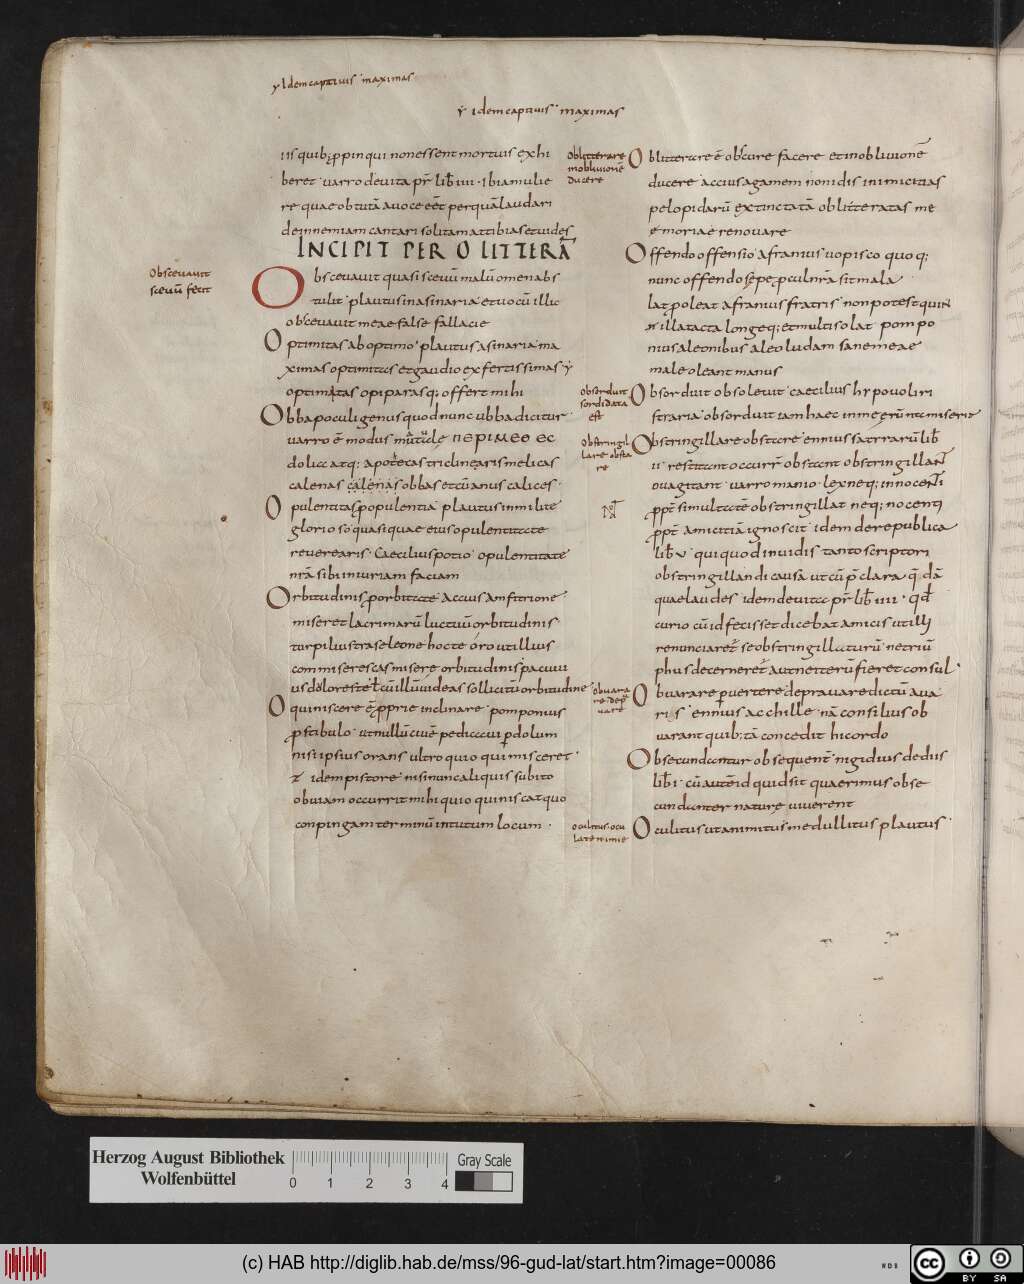 ẏ Idem captiuis maximas
ẏ idem captiuis maximas
iis quibꝰ ꝓpinqui non essent mortuis exhi
beret · uarro de uita pr̄ lib̄ iiii · ibi a mulie
re quae obtutā auoce eēt perquā laudari
dein neniam cantari solitam at tibias et uides
INCIPIT PER O LITTERĀ
Obsceuauit
sceuū fecit
Obsceuauit quasi sceuū malū omen abs
tulit · plautus in asinaria · et uocū illic
obsceuauit meae false fallacie
Optimitas ab optimo · plautus asinaria · ma
ximas optimitates et gaudio exfertissimas ẏ
optimatas opiparasq; offert mihi
Obba poculi genus quod nunc ubba dicitur ·
uarro ē modus matulę ΠΕΡΙΜΕΘΕϹ
dolia atq; apotecas tricliniaris melicas
calenas calenas obbas et cūanus calices ·
Opulentitas ꝓ opulentia · plautus in milite
glorioso · quasi quae eius opulentitate
reuerearis · Caecilius potio · opulentitate
nr̄a sibi iniuriam faciam
Orbitudinis ꝓ orbitate · Accius Amfitrione
miseret lacrimarū luctuū orbitudinis ·
turpilius traseleone hoc te óro ut illius
commiserescas misere orbitudinis · pacuui
us doloreste t̄ cū illū uideas sollicitū orbitudine
Oquiniscere ē ꝓprie inclinare · pomponius
ꝓstibulo · ut nullū ciuē pedicaui ꝑ dolum
nisi ipsius orans ultro quio qui misceret ·
&amp; idem pistore · nisi nunc aliquis subito
obuiam occurrit mihi qui oquiniscat quo
conpingam terminū in tutum locum ·
Oblitterare
in obliuionē
ducere
Oblitterare ē obscure facere et in obliuionē
ducere · accius agamemnonidis inimicitias
pelopidarū extinctatā oblitteratas me
ēmoriae renouare
Offendo offensio · Afranius uopisco quo q;
nunc offendo sępe ꝓculn̄ra sit mala
lat poleat afranius fratris non potest quin
illa tacta longe q; et multis olat · pompo
nius aleonibus aleo ludam sane meae
male oleant manus
Obsorduit
sordidata
est
Obsorduit obsoleuit · caecilius hypouoliri
straria · obsorduit iam haec in me
Obstringil
lare obsta
re
Obstringillare obstare · ennius satrrarū lib̄
ii · restitant occurr̄ obstant obstringillant
ouagitant · uarro manio · lex neq; innocenti
ꝓpt̄ simultate obstringillat neq; nocenti
ꝓpt̄ amicitiā ignoscit · idem de republica
lib̄ v · qui quod inuidis tanto scriptori
obstringillandi causā ut cū p̄clara q̄dā
quae laudes · idem de uita pr̄ lib̄ iiii · qd̄
curio cū id fecisset dicebat amicis utilli
renunciaret se obstringillaturū ne triū
phus decerneret aut ne iterū fieret consul ·
Obuarare peruertere deprauare dictū aua
ris · ennius acchille · nā consilius ob
uarant quib; tā concedit hic ordo
Obsecundantur obsequent̄ · nigidius de diis
lib̄ i · cū autē id quidsit quaerimus obse
cundanter nature uiuerent
oculitus · ocu
late nimie
Oculitus ut animitus medullitus plautus ·
Herzog August Bibliothek
Wolfenbüttel
0 1 2 3 4
Gray Scale
(c) HAB http://diglib.hab.de/mss/96-gud-lat/start.htm?image=00086
WDB
cc BY SA